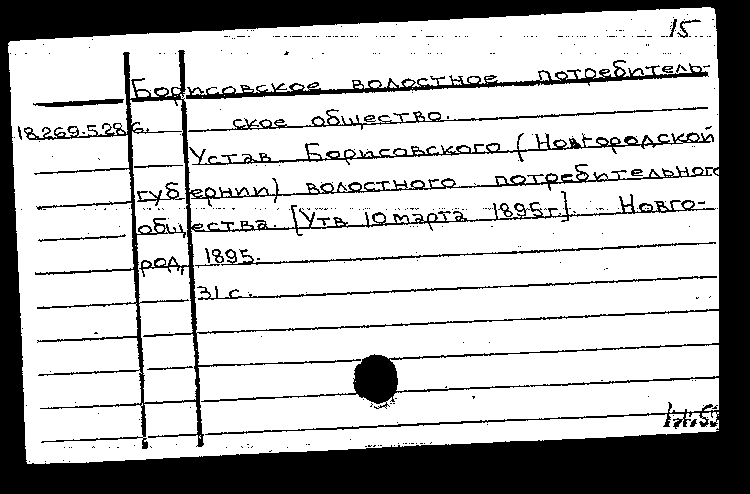 15
Борисовское волостное потребитель-
18.269.5.286. ское общество.
Устав Борисовского (Новгородской
губернии) волостного потребительного
общества. [Утв 10 марта 1895 г.]. Новго-
род, 1895.
31 с.